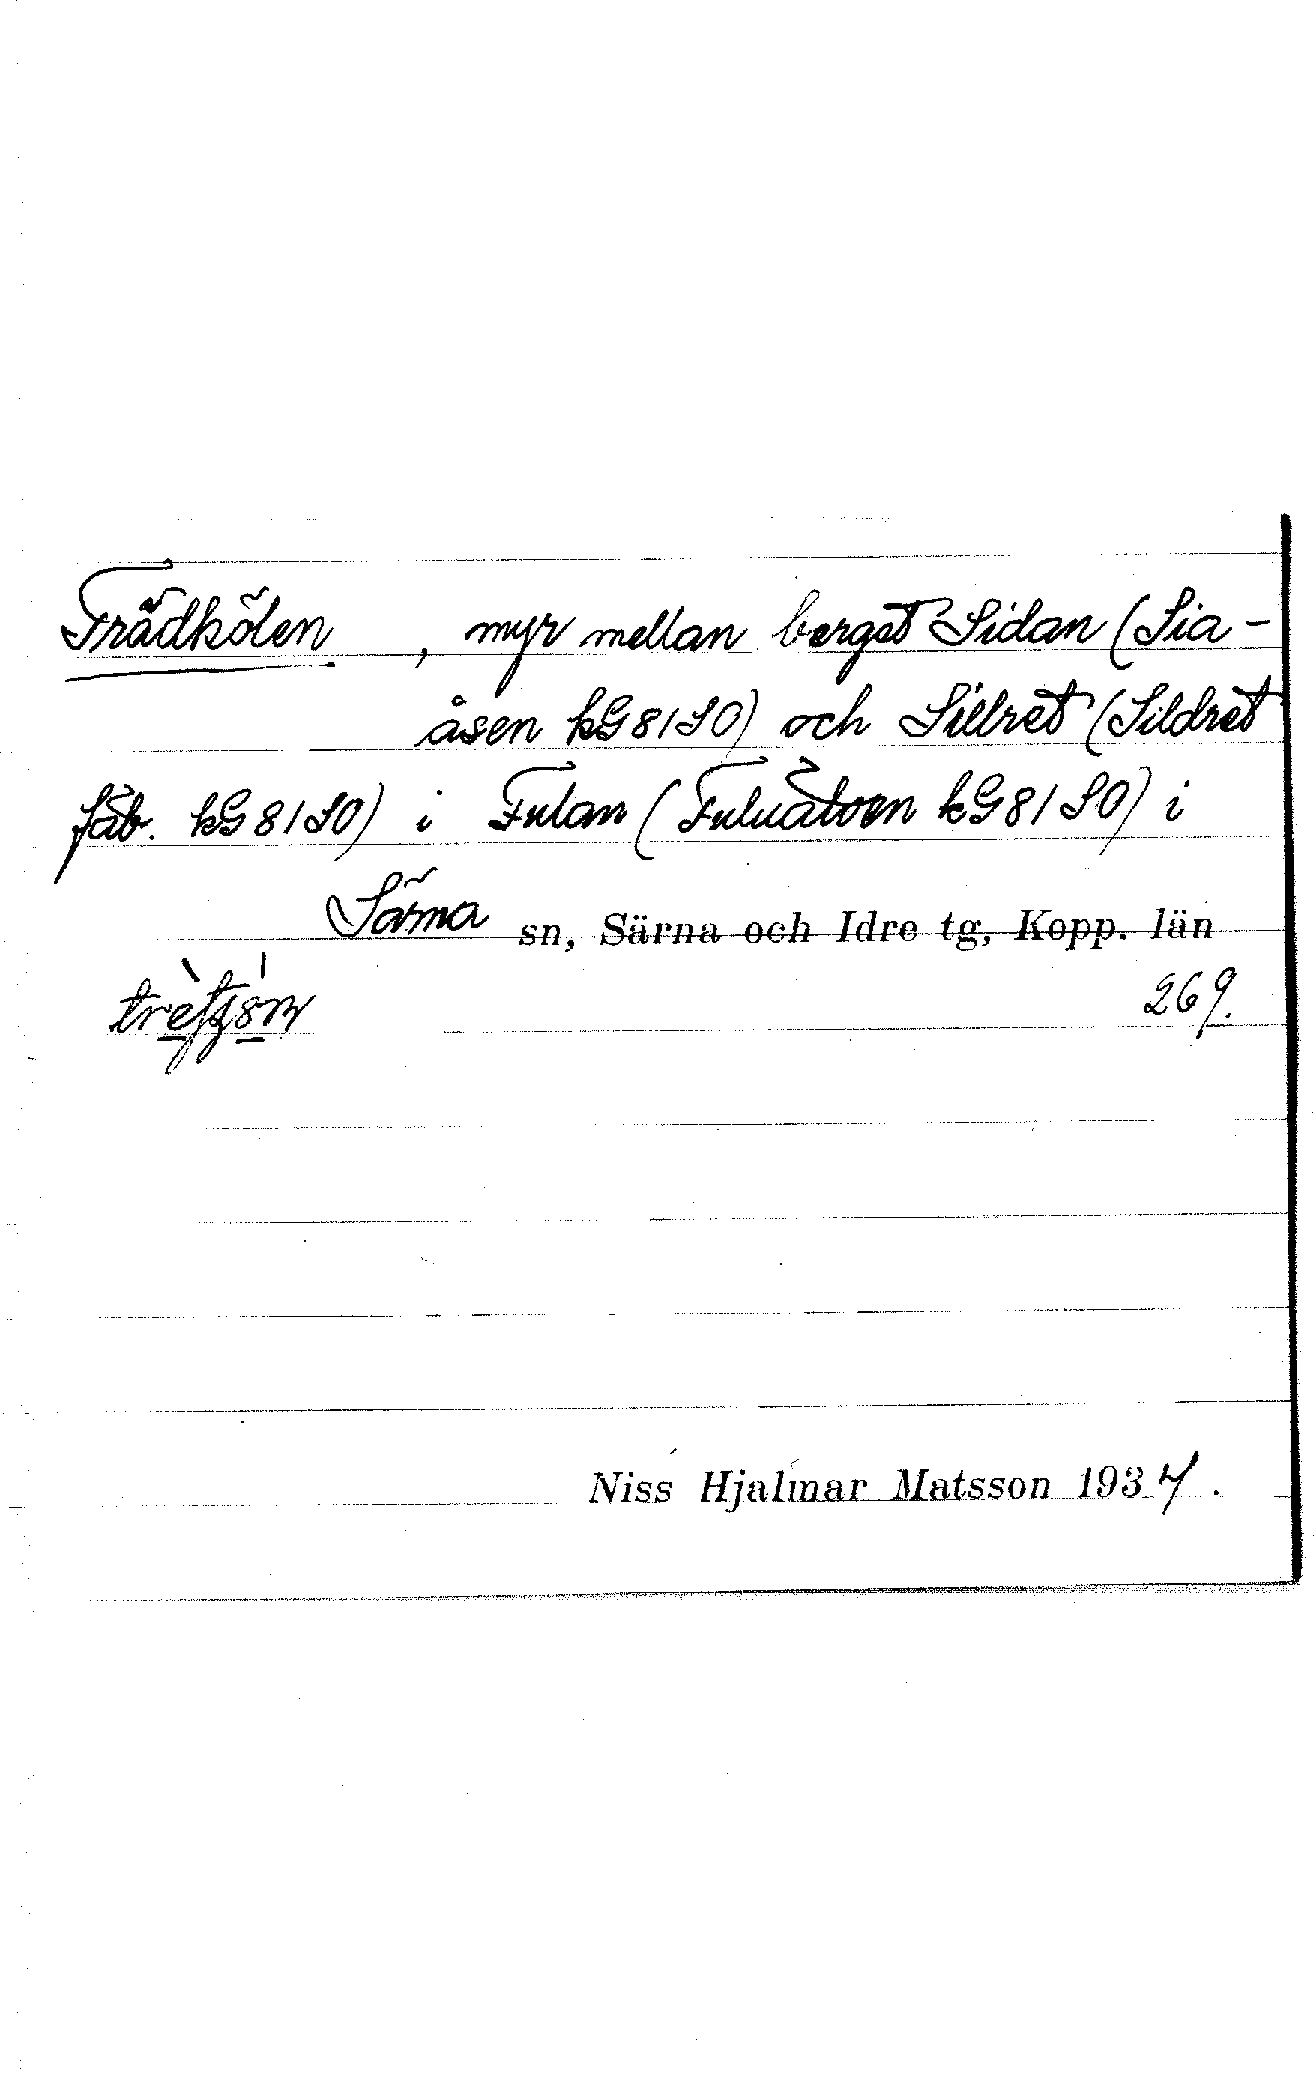 Trädkölen, myr mellan berget Sidan (Sia-
åsen kG81SO) och Sillret (Sildret
fäb. kG81SO) i Fulan (Fuluälven kG81SO) i
Särna sn, Särna och Idre tg, Kopp. län
269.
Niss Hjalmar Matsson 1937.